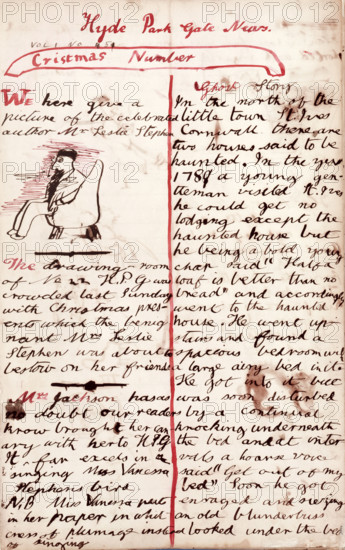 Hyde Park Gate News.
VOL. 1 NO
Cristmas Number
We here give a
picture of the celebrated
author Mr Leslie Stephen
The drawing room
of No 22 H.P.G was
crowded last Sunday
with Christmas pres-
ents which the benig
nant Mrs Leslie
Stephen was about to
bestow on her friends
Mrs Jackson has as
no doubt our readers
know brought her
ary with her to H.P.G
It far excels in
singing Miss Vanessa
Stephens bird
N.B Miss Vanessa put
in her paper in whit an
cress of plumage instead
of singing
Ghost Story
In the north of the
little town St. Ives
Cornwall there are
two houses said to be
haunted. In the year
1789 a young gen-
tleman visited St. Ives
he could get no
lodging except the
haunted house but
he being a bold young
chap said "Half a
loaf is better than no
bread" and accordingly
went to the haunted
house. He went up-
stairs and found a
spacious bedroom with
a large airy bed in it.
He got into it but
was soon disturbed
by a continual
knocking underneath
the bed and at inter
vals a hoarse voice
said "Get out of my
bed" Soon he got
enraged and seizing
an old blunderbuss
looked under the bed